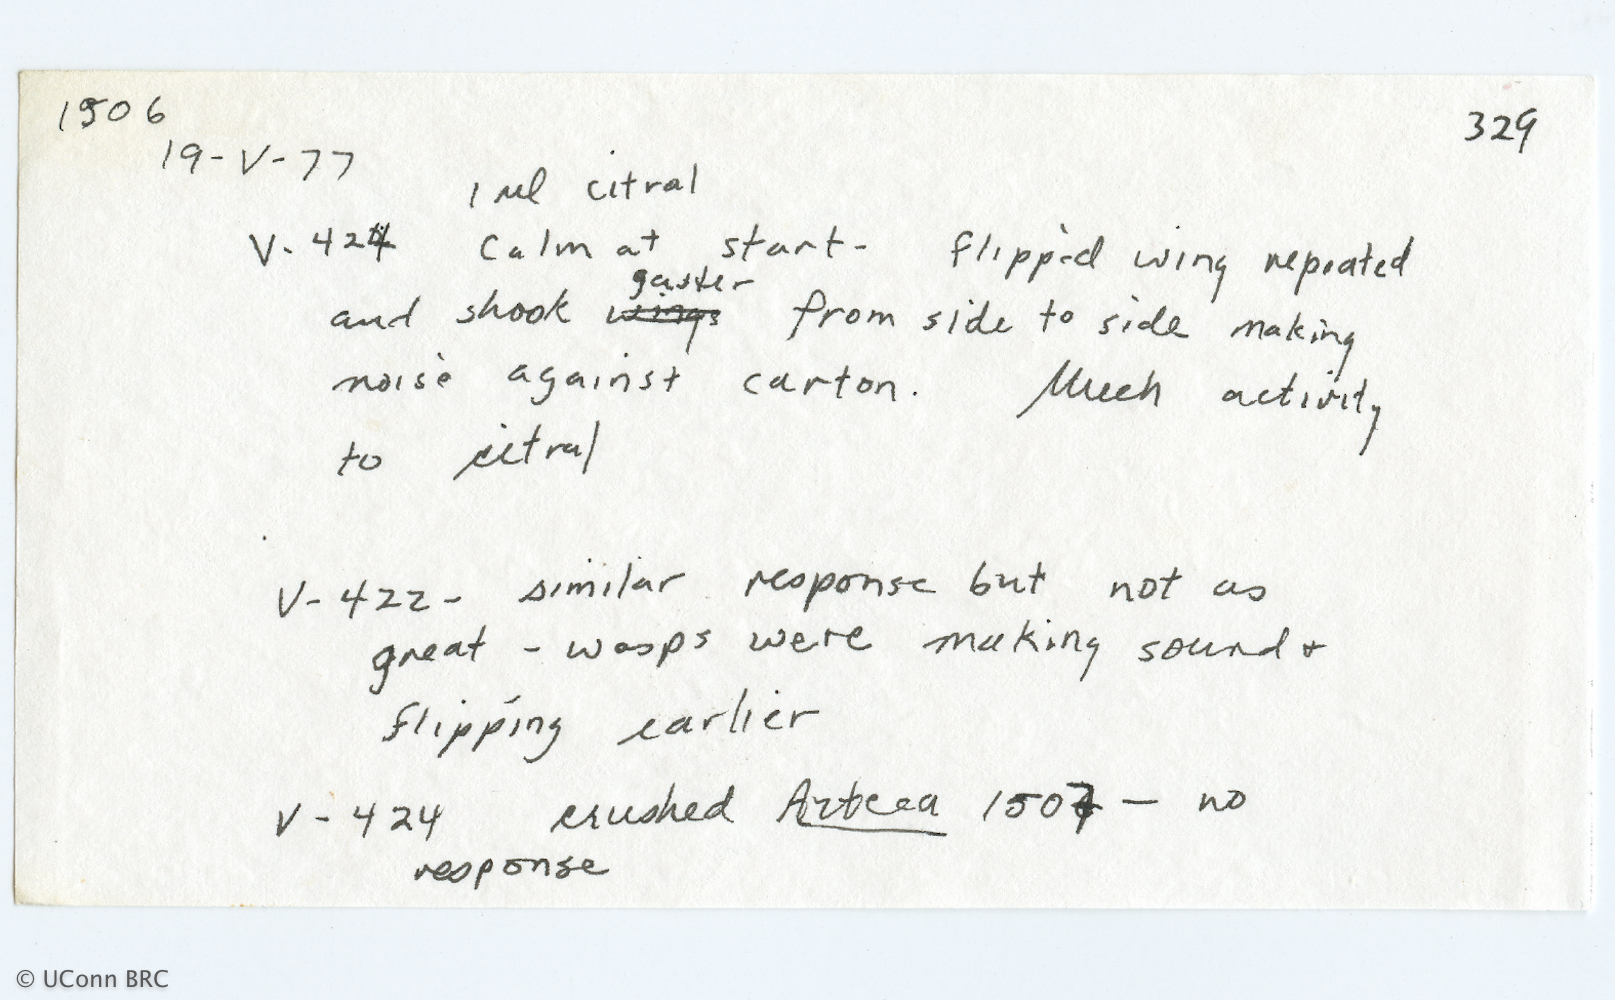 1506
329
19-V-77
1 ul citral
V-424 Calm at start- flipped wing repeated
gaster
and shook wings from side to side making
noise against carton. Much activity
to citral
V-422- similar response but not as
great - wasps were making sound +
flipping earlier
V-424 crushed 1507 - no
response
© UConn BRC